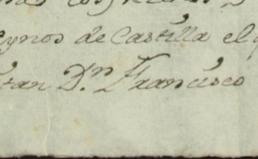 eynos de Castilla el
tan Dⁿ Francisco